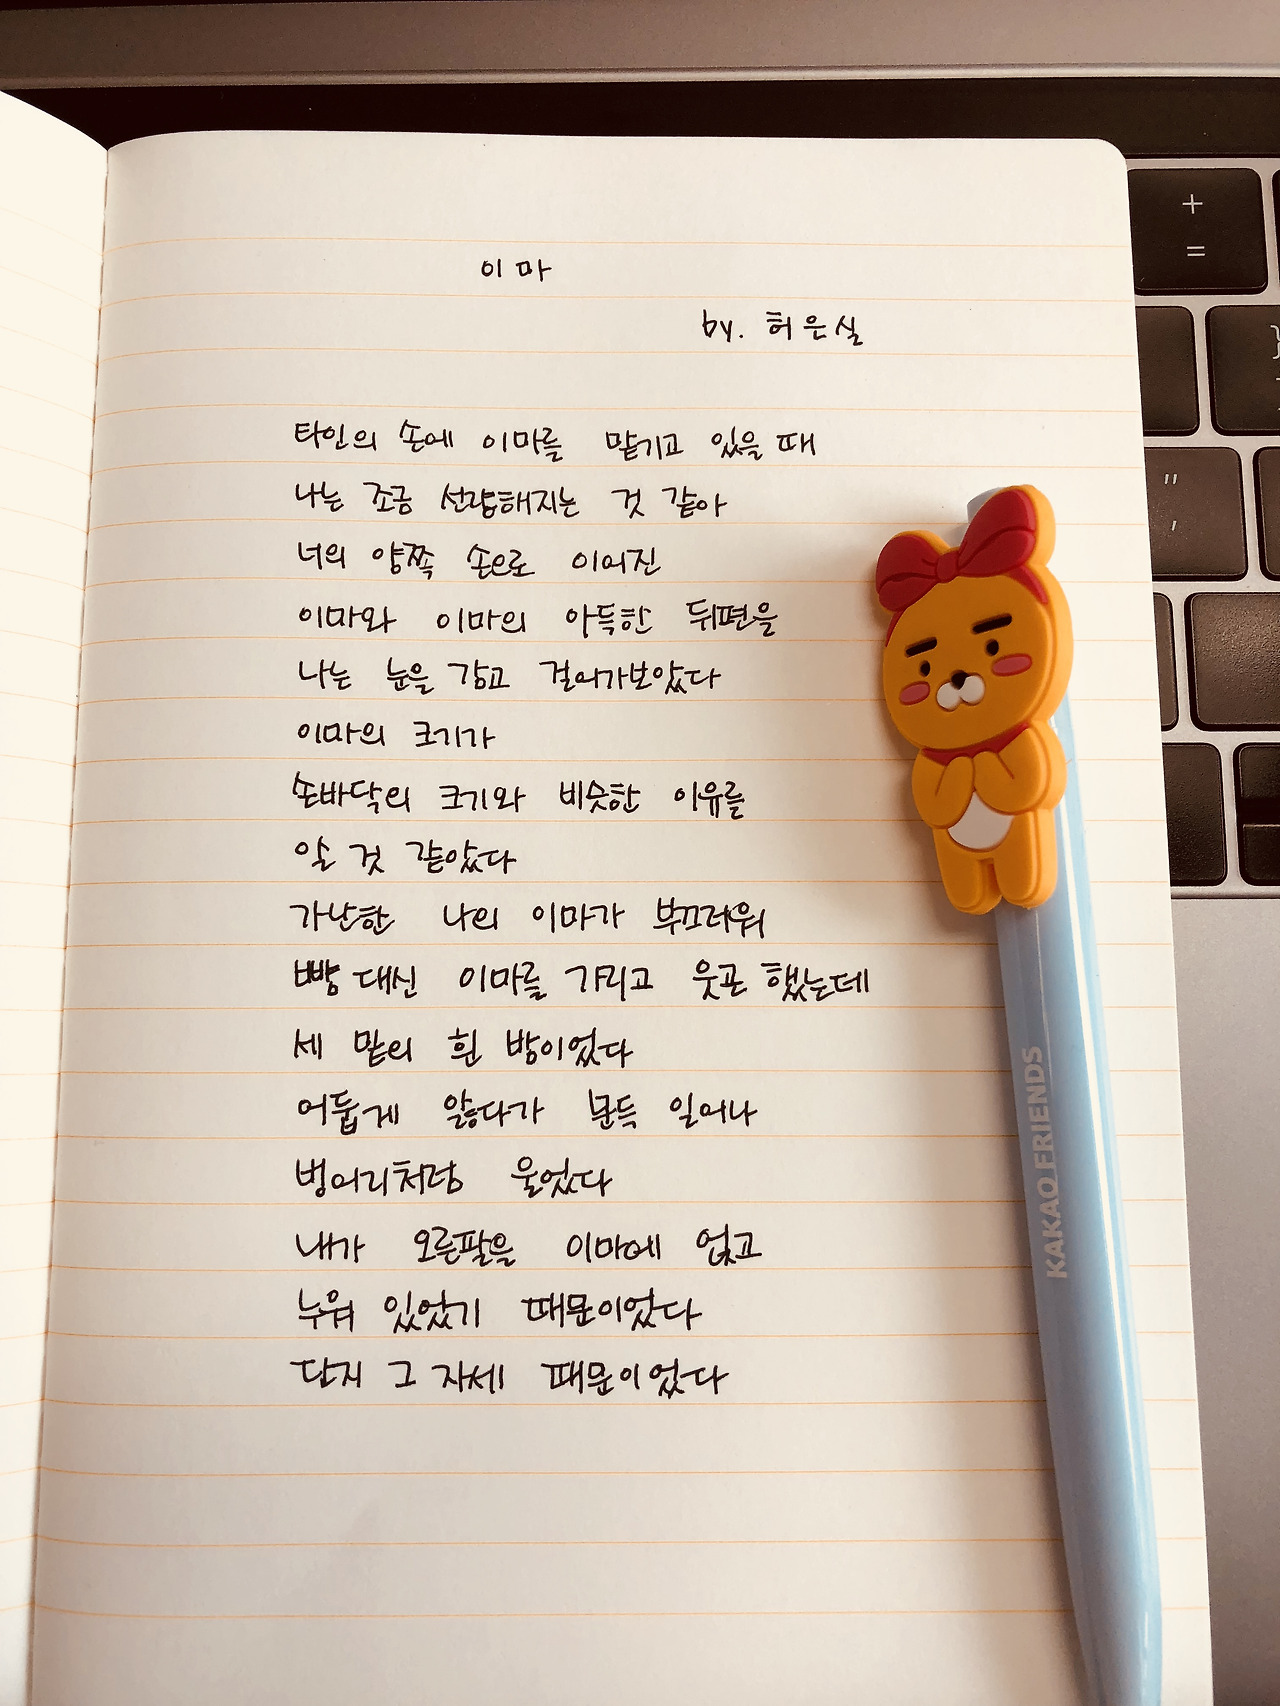 이마
by. 허은실
타인의 손에 이마를 맡기고 있을 때
나는 조금 선량해지는 것 같아
너의 양쪽 손으로 이어진
이마와 이마의 아득한 뒤편을
나는 눈을 감고 걸어가보았다
이마의 크기가
손바닥의 크기와 비슷한 이유를
알 것 같았다
가난한 나의 이마가 부끄러워
뺨 대신 이마를 가리고 웃곤 했는데
세 밑의 흰 밤이었다
어둡게 앓다가 문득 일어나
벙어리처럼 울었다
내가 오른팔을 이마에 얹고
누워 있었기 때문이었다
단지 그 자세 때문이었다
KAKAO FRIENDS
+
=
"
,
}